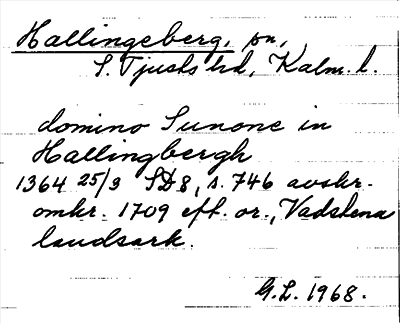 Hallingeberg, sn,
S. Tjusts hd, Kalm. l.
domino Sunone in
Hallingbergh
1364 25/3 SD 8, s. 746 avskr.
omkr. 1709 eft. or., Vadstena
landsark.
G.L. 1968.